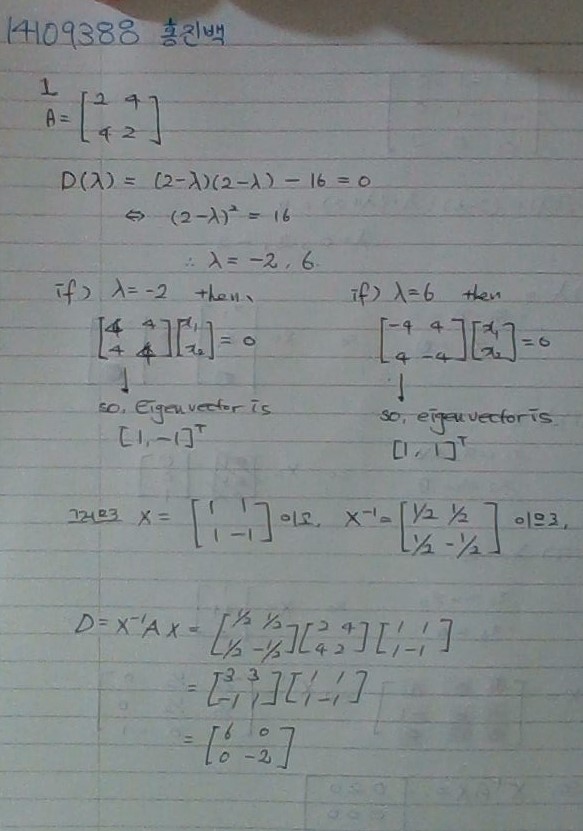 14109388 홍진백
1
A = [2 4; 4 2]
D(λ) = (2-λ)(2-λ) - 16 = 0
⇔ (2-λ)² = 16
∴ λ = -2, 6.
if) λ = -2 then,
[4 4; 4 4][x₁; x₂] = 0
↓
so, Eigenvector is
[1, -1]ᵀ
if) λ=6 then
[-4 4; 4 -4][x₁; x₂] = 0
↓
so, eigenvector is
[1, 1]ᵀ
그러므로 X = [1 1; 1 -1] 이고, X⁻¹ = [1/2 1/2; 1/2 -1/2] 이므로,
D = X⁻¹AX = [1/2 1/2; 1/2 -1/2][2 4; 4 2][1 1; 1 -1]
= [3 3; -1 1][1 1; 1 -1]
= [6 0; 0 -2]